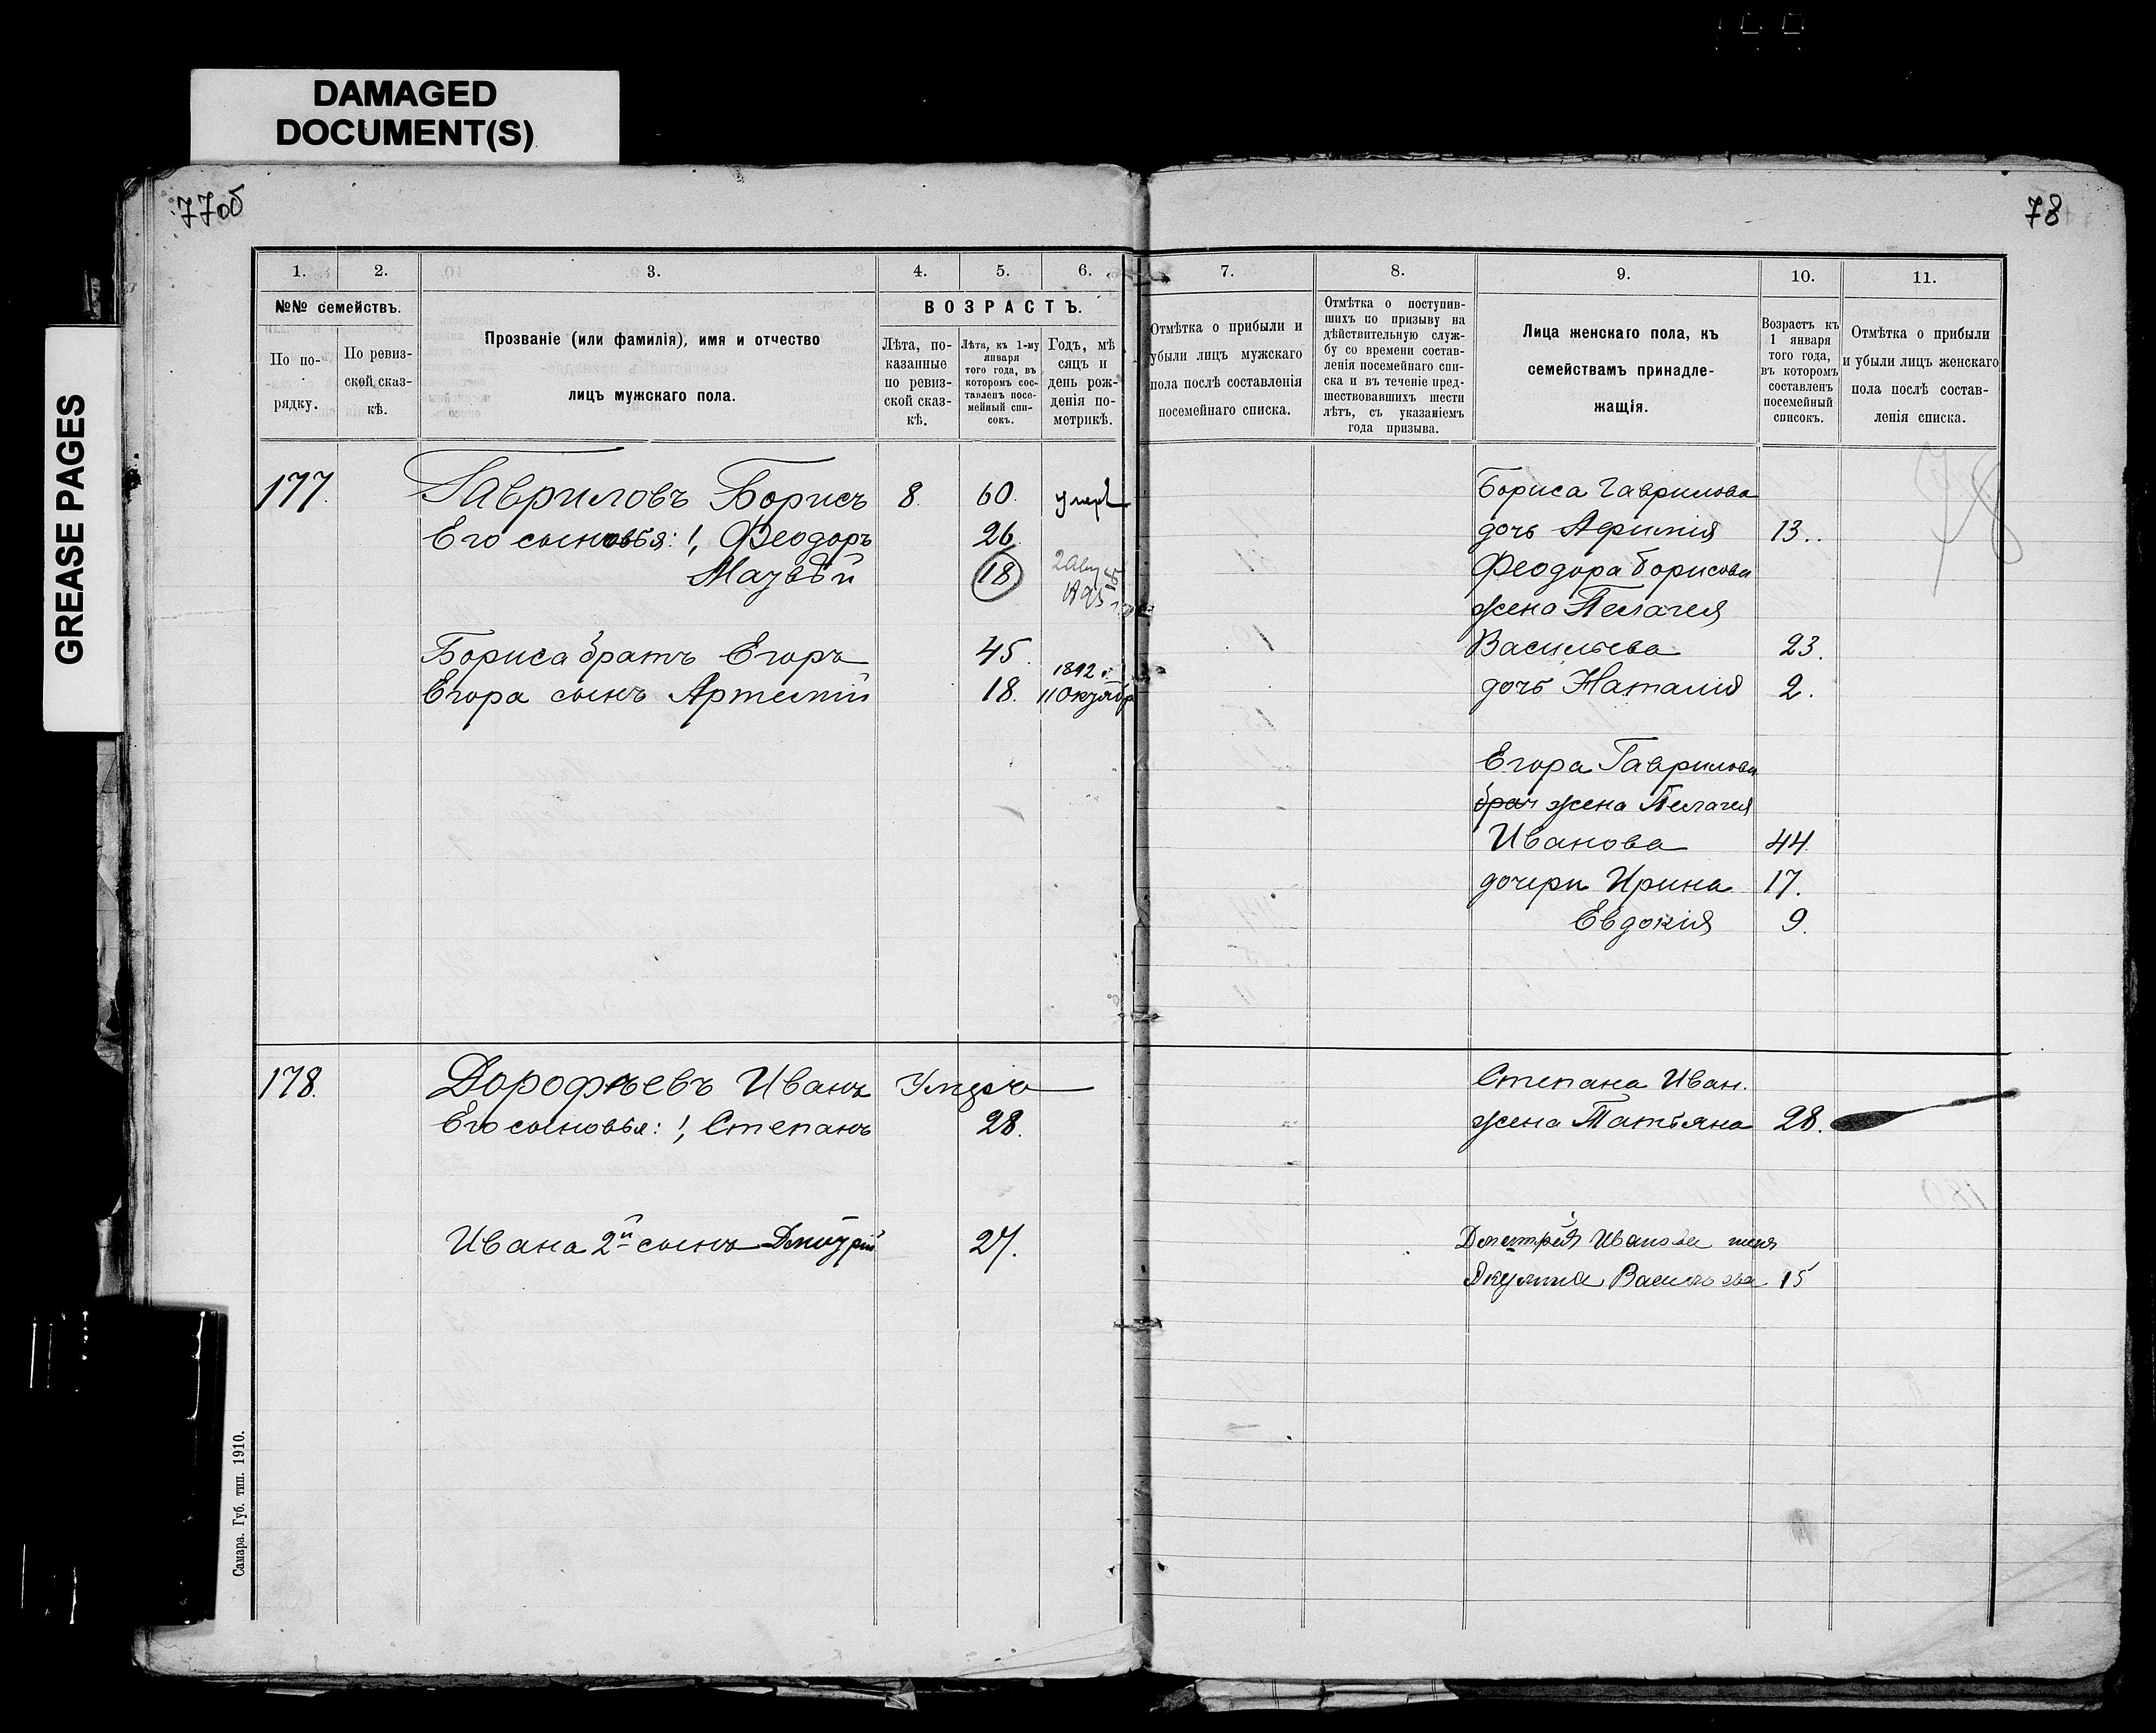 DAMAGED
DOCUMENT(S)
GREASE PAGES
77об
78
1.
2.
3.
4.
5.
6.
7.
8.
9.
10.
11.
№№ семействъ.
По по-
рядку.
По ревиз-
ской сказ-
кѣ.
Прозваніе (или фамилія), имя и отчество
лицъ мужскаго пола.
ВОЗРАСТЪ.
Лѣта, по-
казанные
по ревиз-
ской сказ-
кѣ.
Лѣта, къ 1-му
января
того года, въ
которомъ сос-
тавленъ посе-
мейный спи-
сокъ.
Годъ, мѣ
сяцъ и
день рож-
денія по-
метрикѣ.
Отмѣтка о прибыли и
убыли лицъ мужскаго
пола послѣ составленія
посемейнаго списка.
Отмѣтка о поступив-
шихъ по призыву на
дѣйствительную служ-
бу со времени состав-
ленія посемейнаго спи-
ска и въ теченіе пред-
шествовавшихъ шести
лѣтъ, съ указаніемъ
года призыва.
Лица женскаго пола, къ
семействамъ принадле-
жащія.
Возрастъ къ
1 января
того года,
въ которомъ
составленъ
посемейный
списокъ.
Отмѣтка о прибыли
и убыли лицъ женскаго
пола послѣ состав-
ленія списка.
177. Гавриловъ Борисъ 8. 60. умеръ
Его сыновья: 1, Феодоръ 26.
Матвѣй 18
Бориса братъ Егоръ 45.
1892 г.
Егора сынъ Артемій 18. 11 Октябр
Бориса Гаврилова
дочь Афимія 13.
Феодора Борисова
жена Пелагея
Васильева 23.
дочь Наталия 2.
Егора Гаврилова
брат жена Пелагея
Иванова 44.
дочери Ирина 17.
Евдокия 9.
178. Дорофѣевъ Иванъ Умеръ
Его сыновья: 1, Степанъ 28.
Ивана 2й сынъ Дмитрій 27.
Степана Иван.
жена Татьяна 28.
Дмитрія Иванова жена
Акулина Васильева 15
Самара. Губ. тип. 1910.